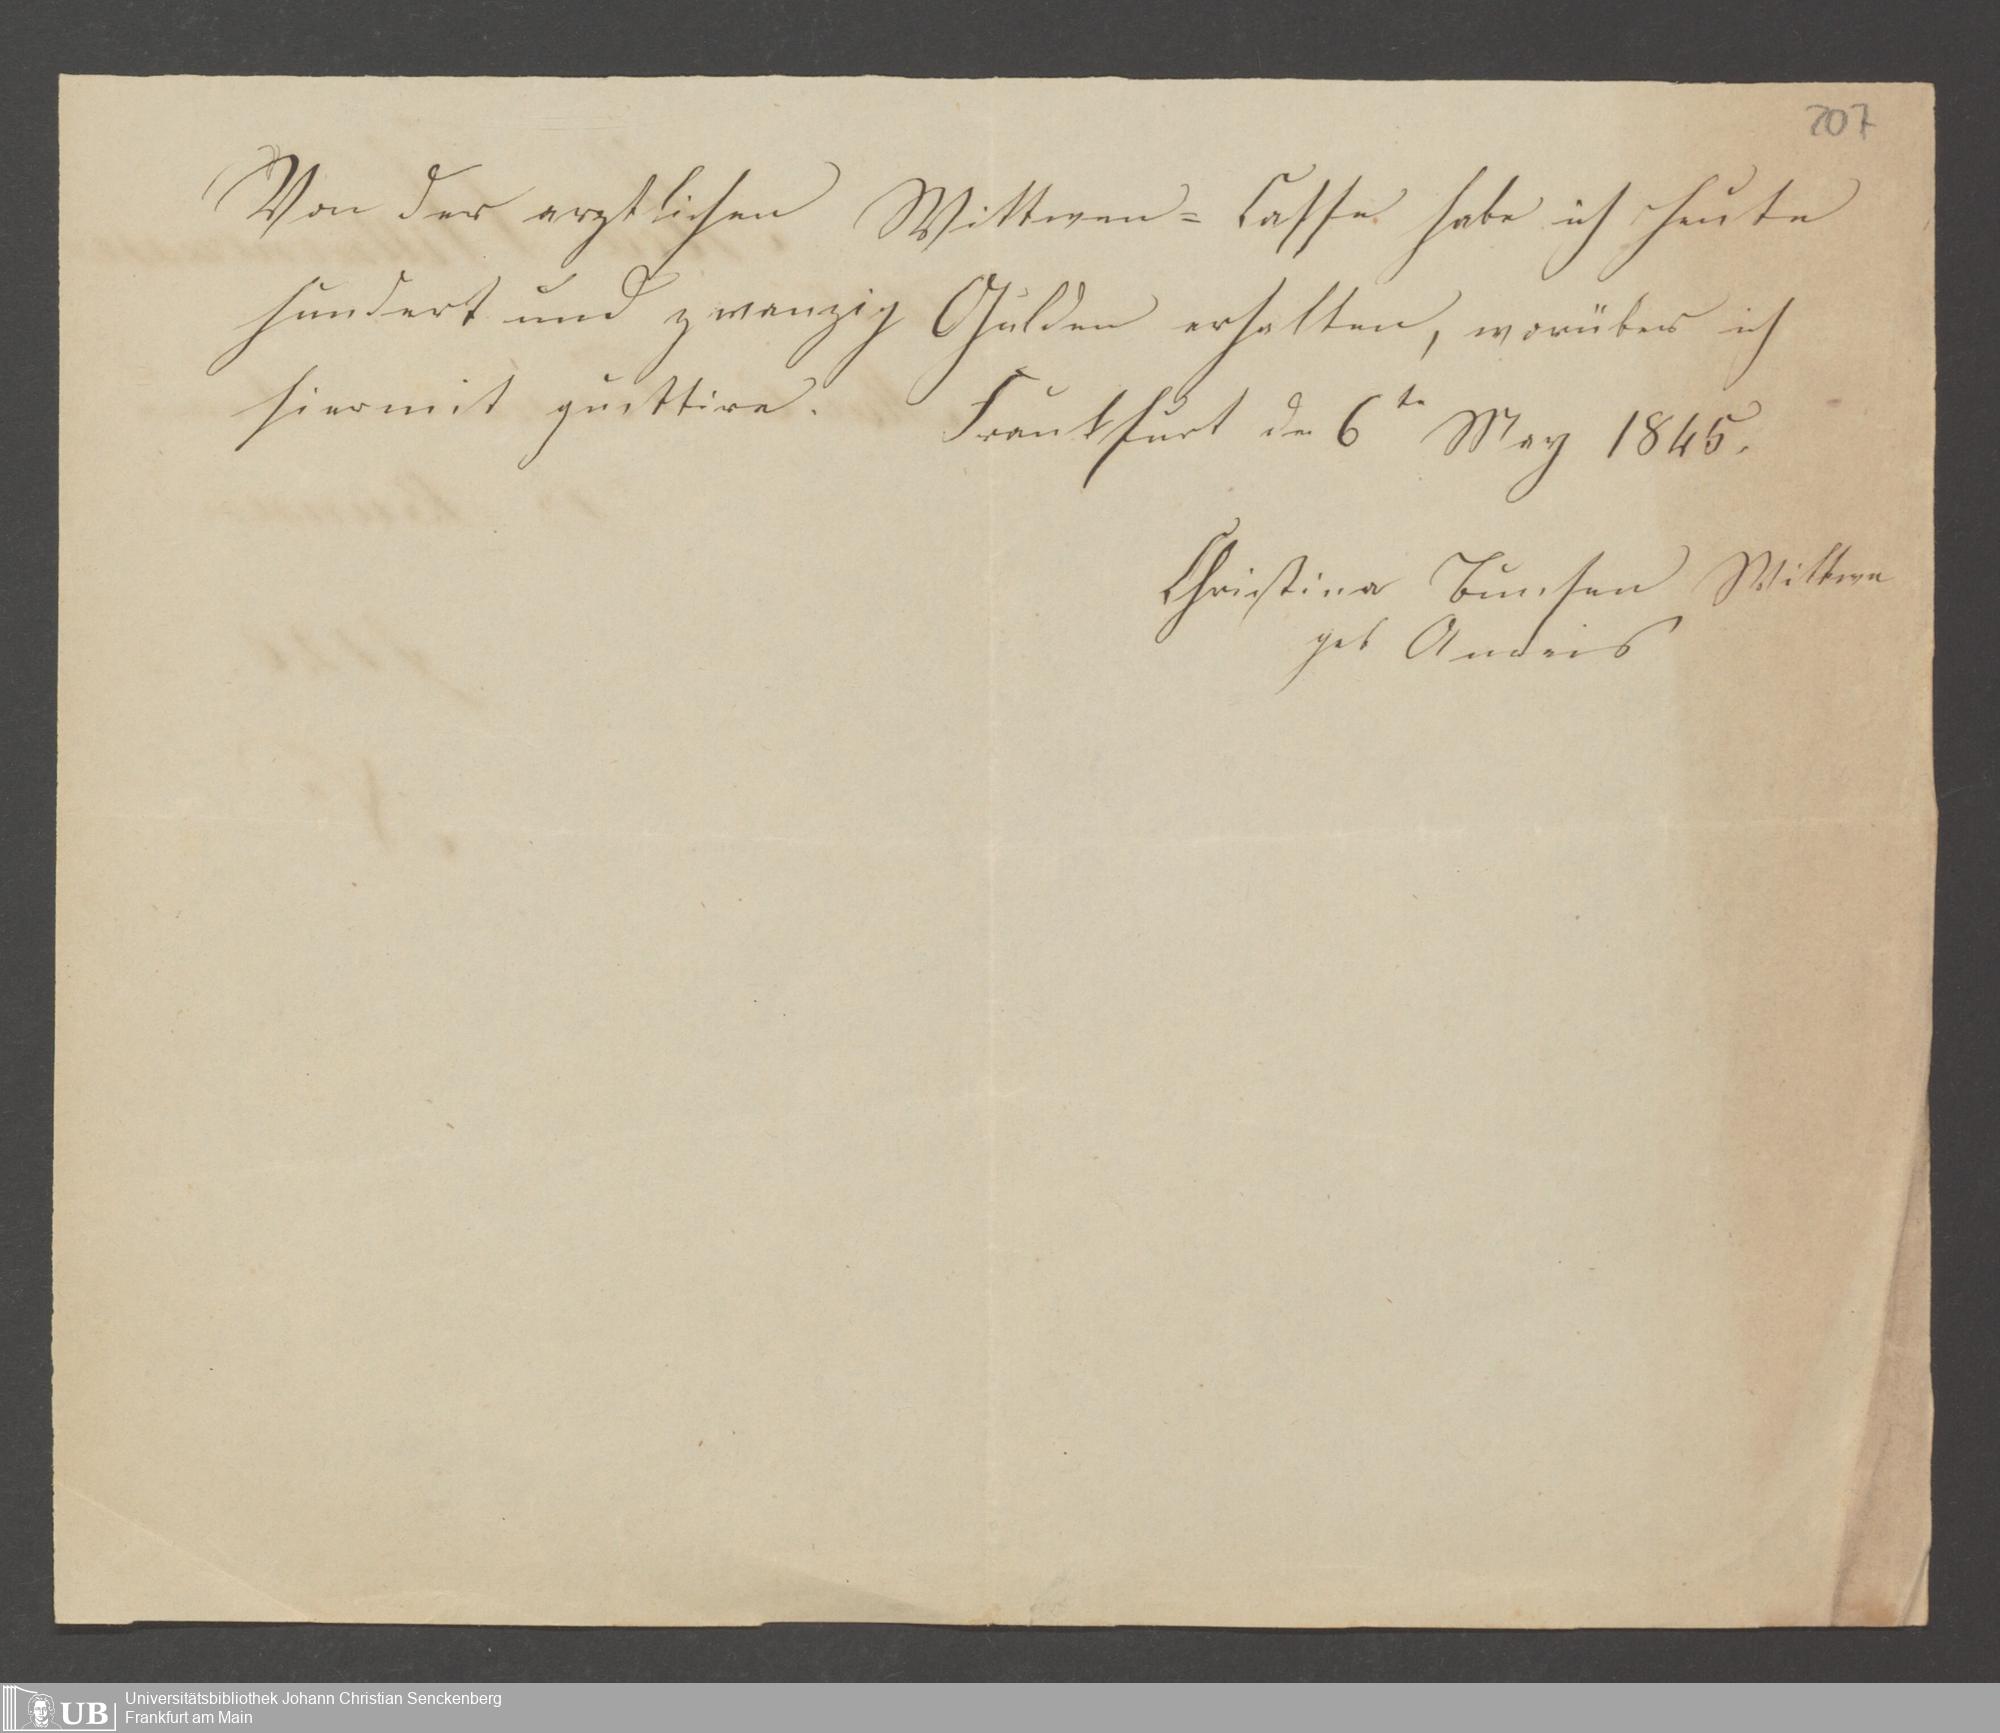 207
Von der arztlichen Wittwen = Casse habe ich heute
hundert und zwanzig Gulden erhalten, worüber ich
hiermit quittire. Frankfurt de 6te May 1845.
Christina Bunsen Wittwe
geb
UB
Universitätsbibliothek Johann Christian Senckenberg
Frankfurt am Main